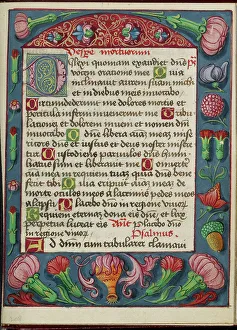 Vespe mortuorum
Dilexi quoniam exaudiet dns
vocem orationis mee Quia
inclinauit aurem suam michi
et in diebus meis inuocabo
Circumdederunt me dolores mortis et
pericula inferni inuenerunt me Tribu
lationem et dolorem inueni et nomen dni
inuocabo O dne libera aiam meam mise
ricors dns et iustus et deus noster misere
tur Custodiens paruulos dns humi
liatus sum et liberauit me Conuertere
aia mea in requiem tuam quia dns bene
fecit tibi Quia eripuit aiam meam
de morte oculos meos a lacrimis pedes meos
a lapsu Placebo dno in regione viuorum
Requiem eternam dona eis dne et lux
perpetua luceat eis Ant Placebo dno
in regione viuor Psalmus
Ad dnm cum tribularer clamaui